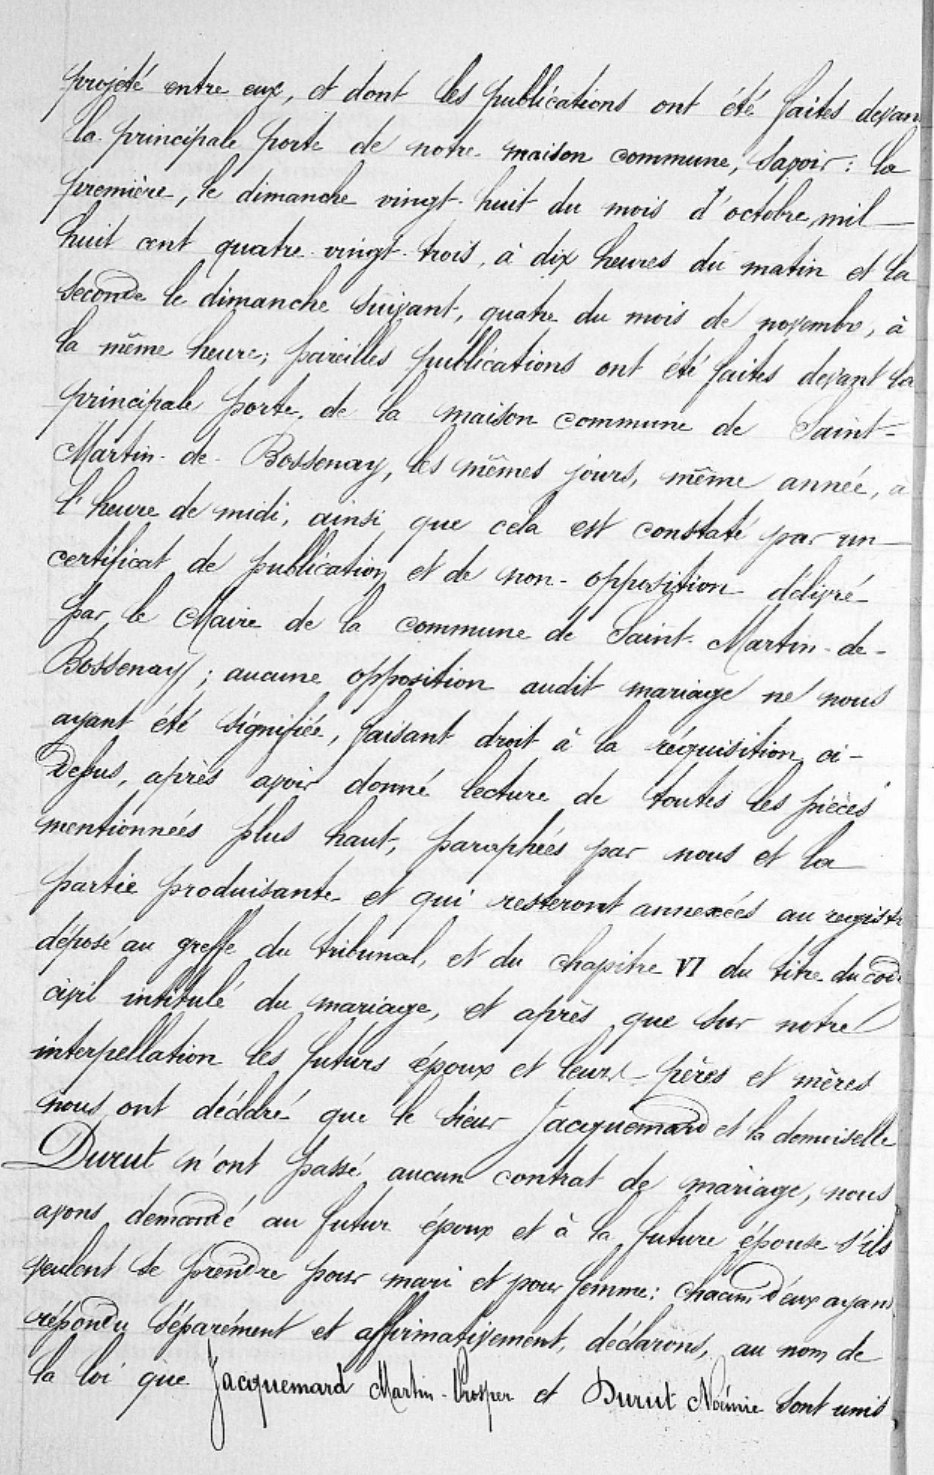 projeté entre eux, et dont les publications ont été faites devan
la principale porte de notre maison commune, savoir : la
première, le dimanche vingt-huit du mois d'octobre, mil
huit cent quatre-vingt-trois, à dix heures du matin et la
seconde le dimanche suivant, quatre du mois de novembre, à
la même heure; pareilles publications ont été faites devant la
principale porte de la maison commune de Saint-
Martin-de-Bossenay, les mêmes jours, même année, à
l'heure de midi, ainsi que cela est constaté par un
certificat de publication et de non-opposition délivré
par le Maire de la commune de Saint-Martin-de-
Bossenay; aucune opposition audit mariage ne nous
ayant été signifiée, faisant droit à la réquisition ci-
dessus, après avoir donné lecture de toutes les pièces
mentionnées plus haut, paraphées par nous et la
partie produisante et qui resteront annexées au registr
déposé au greffe du tribunal, et du chapitre VI du titre du code
civil intitulé du mariage, et après que sur notre
interpellation les futurs époux et leurs pères et mères
nous ont déclaré que le sieur Jacquemard et la demoiselle
Durut n'ont passé aucun contrat de mariage, nous
avons demandé au futur époux et à la future épouse s'ils
veulent se prendre pour mari et pour femme: chacun d'eux ayant
répondu séparément et affirmativement, déclarons, au nom de
la loi que Jacquemard Martin-Prosper et Durut Noémie sont unis